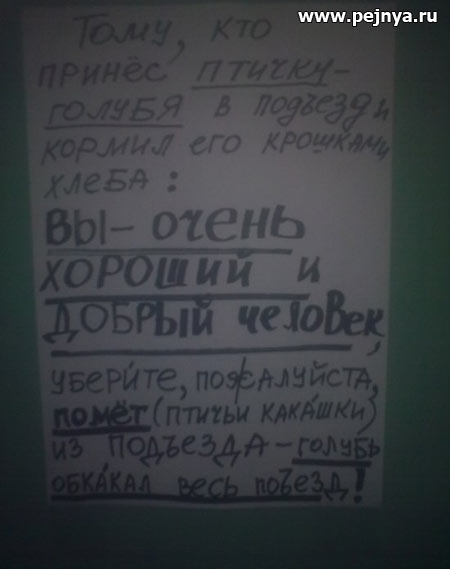 www.pejnya.ru
Тому, кто
принёс птичку-
голубя в подъезд и
кормил его крошками
хлеба:
Вы- очень
хороший и
добрый человек,
уберите, пожалуйста,
помёт (птичьи какáшки)
из подъезда-голубь
обкáкал весь поъезд!